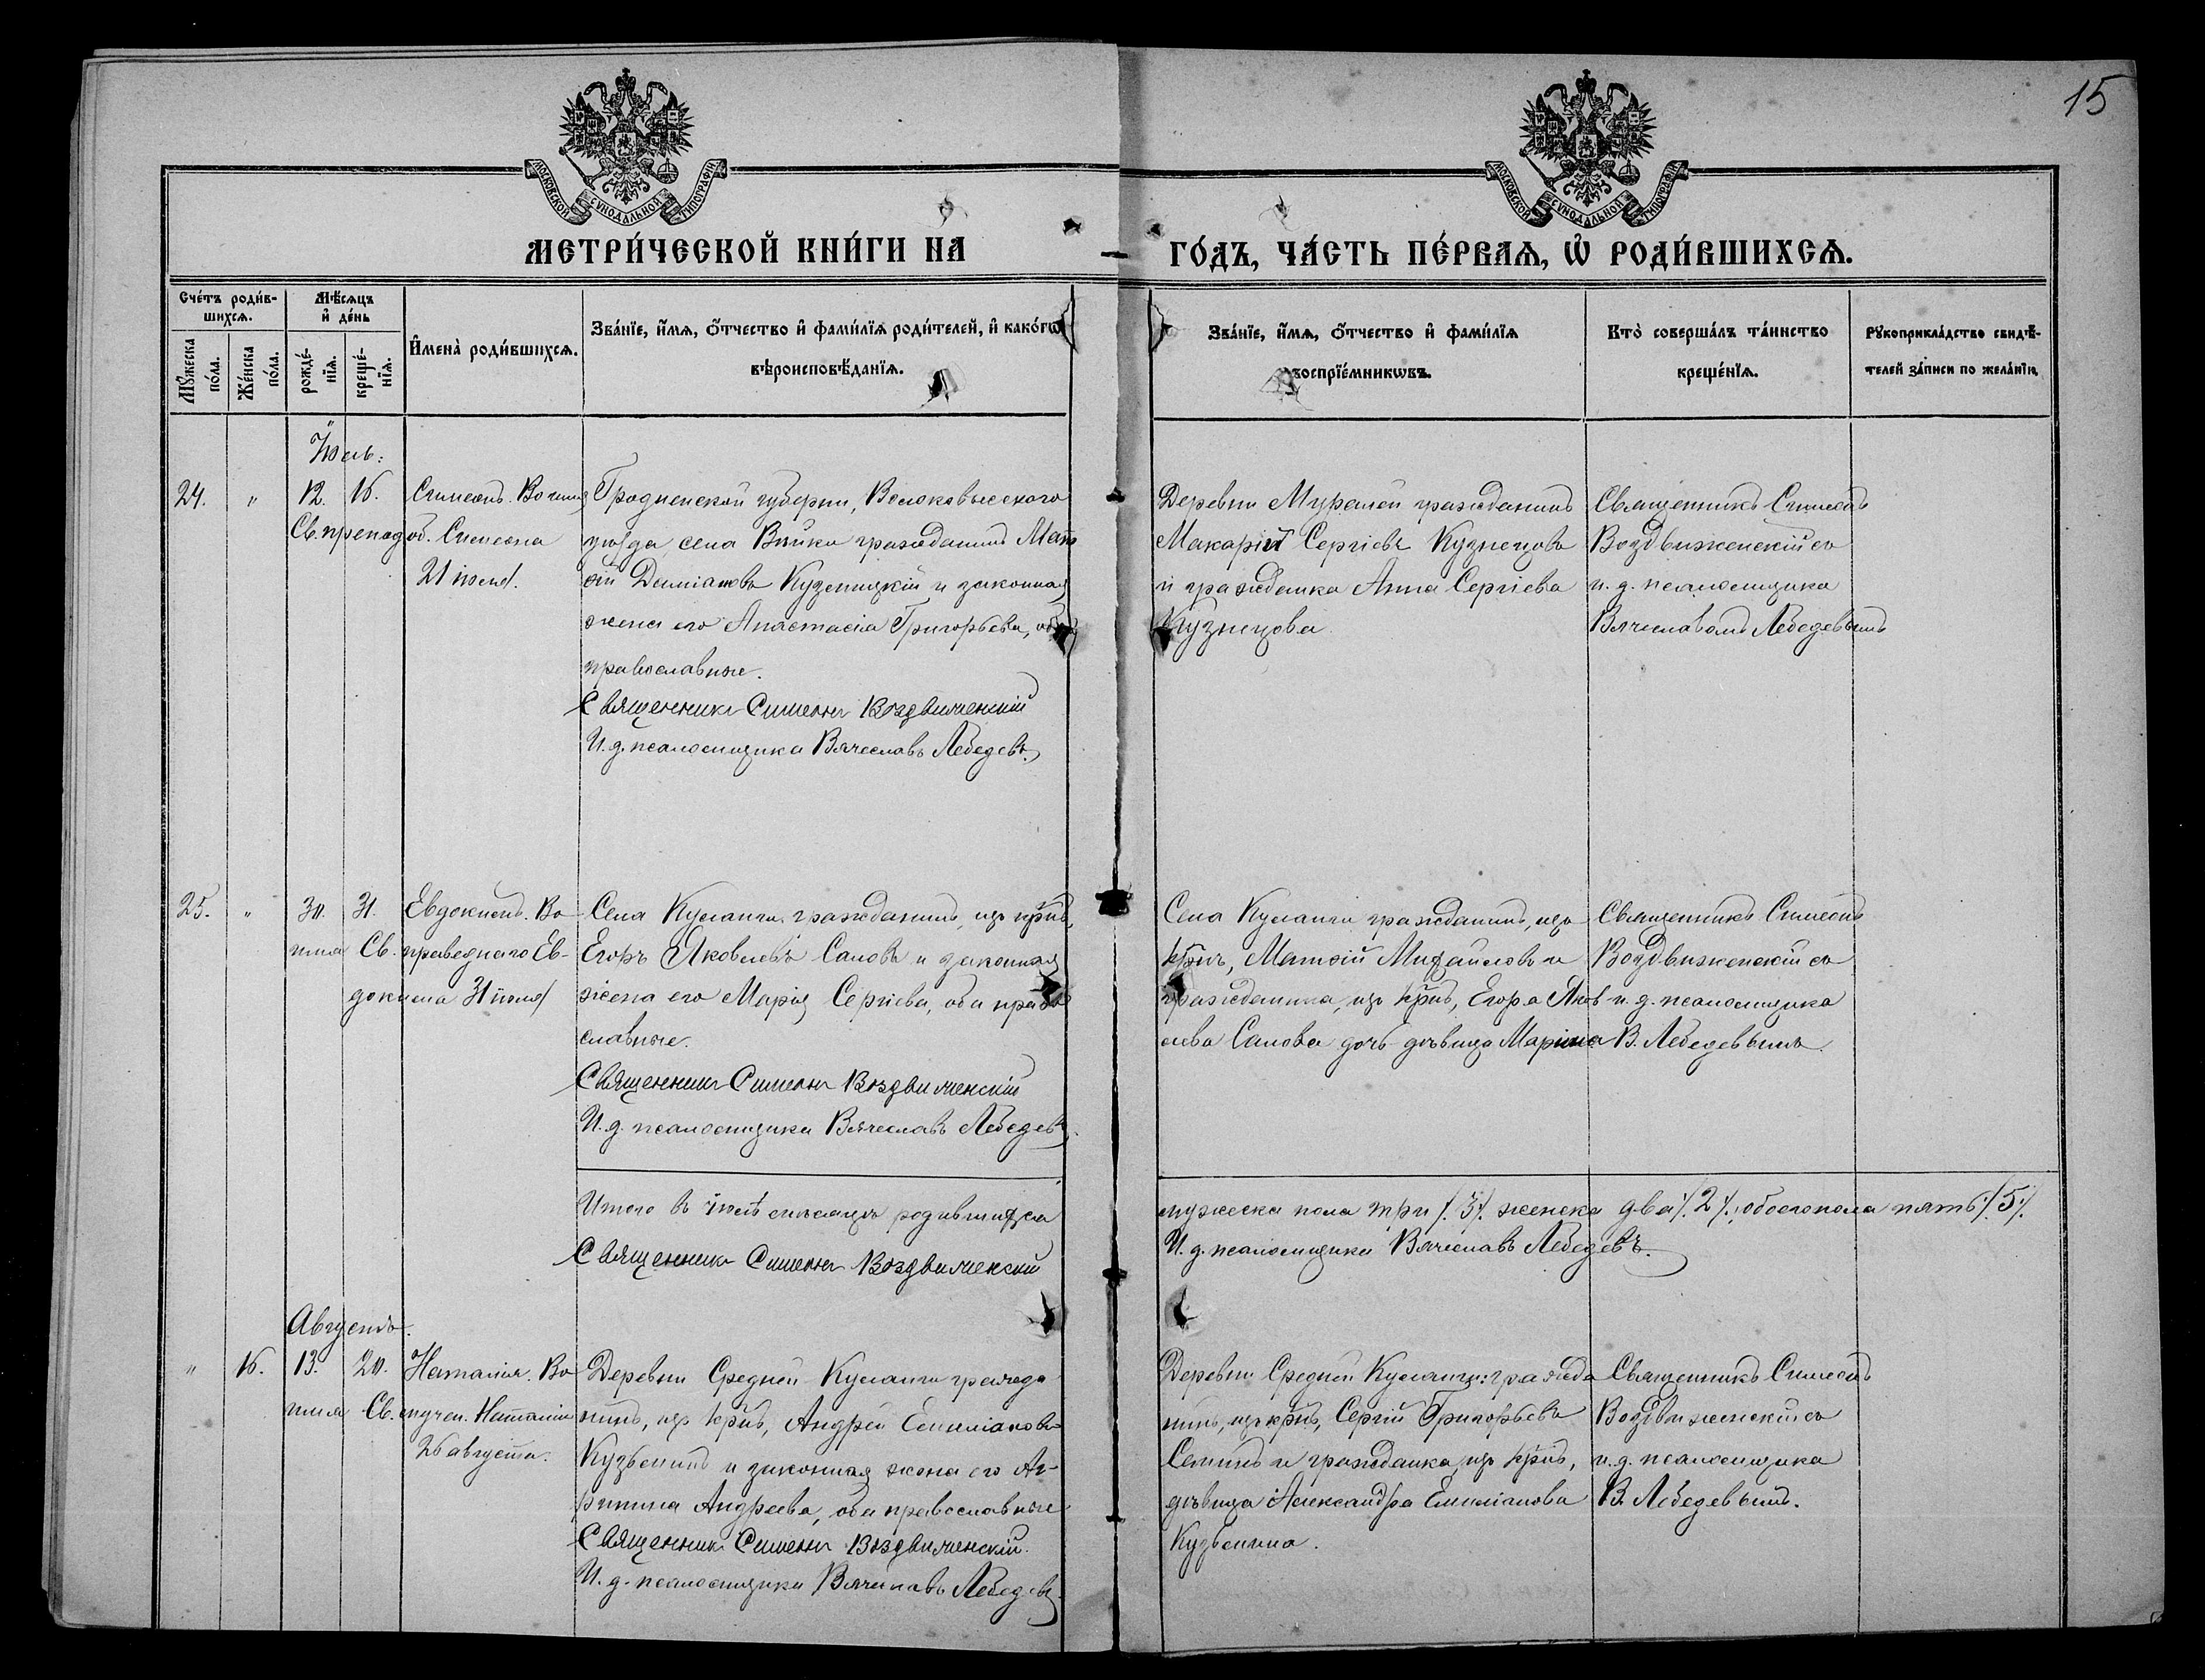 15
МОСКОВСКОЙ СѴНОДАЛЬНОЙ ТИПОГРАФІИ
МОСКОВСКОЙ СѴНОДАЛЬНОЙ ТИПОГРАФІИ
МЕТРИ́ЧЕСКОЙ КНИ́ГИ НА — ГО́ДЪ, ЧА́СТЬ ПЕ́РВАѦ, Ѡ҆ РОДИ́ВШИХСѦ.
Сче́тъ роди́в-
шихсѧ.
Мꙋ́жеска по́ла.
Же́нска по́ла.
Мѣ́сѧцъ
и҆ де́нь
рожде́-
нїѧ.
креще́-
нїѧ.
И҆мена̀ роди́вшихсѧ.
Зва́нїе, и҆́мѧ, ѻ҆́тчество и҆ фами́лїѧ роди́телей, и҆ како́гѡ
вѣроисповѣ́данїѧ.
Зва́нїе, и҆́мѧ, ѻ҆́тчество и҆ фами́лїѧ
воспрїе́мникѡвъ.
Кто̀ соверша́лъ та́инство
креще́нїѧ.
Рꙋкоприкла́дство свидѣ́-
телей за́писи по жела́нїю.
Іюль.
24. " 12. 16. Симеонъ. Во имя
Св. преподоб. Симеона
21 іюля.
Гродненской губерніи, Волоковысскаго
уѣзда, села Войки гражданинъ Мат
ѳій Даміановъ Кузмицкій и законная
жена его Анастасія Григорьева, оба
православные.
Священникъ Симеонъ Воздвиженскій
И. д. псаломщика Вячеславъ Лебедевъ.
Деревни гражданинъ
Макарій Сергіевъ Кузнецовъ
и гражданка Анна Сергіева
Кузнецова.
Священникъ Симеонъ
Воздвиженскій съ
и. д. псаломщика
Вячеславомъ Лебедевымъ
25. " 30. 31. Евдокимъ. Во
имя Св. праведнаго Ев-
докима 31 іюля
Села Кусланги гражданинъ, изъ крнъ,
Егоръ Яковлевъ Саловъ и законная
жена его Марія Сергіева, оба право
славные.
Священникъ Симеонъ Воздвиженскій
И. д. псаломщика Вячеславъ Лебедевъ.
Села Кусланги гражданинъ, изъ
крнъ, Матѳій Михайловъ и
гражданина, изъ крнъ, Егора Яков
лева Салова дочь дѣвица Марина
Священникъ Симеонъ
Воздвиженскій съ
и. д. псаломщика
В. Лебедевымъ.
Итого въ іюлѣ мѣсяцѣ родившихся мужеска пола три /.3/. женска два /.2/., обоего пола пять /.5/.
Священникъ Симеонъ Воздвиженскій
И. д. псаломщика Вячеславъ Лебедевъ.
Августъ.
" 16. 13. 20. Наталія. Во
имя Св. мучен. Наталіи
26 августа.
Деревни Средней Кусланги гражда
нинъ, изъ крнъ, Андрей Емиліановъ
Кузьминъ и законная жена его Аг-
рипина Андреева, оба православные.
Священникъ Симеонъ Воздвиженскій.
И. д. псаломщика Вячеславъ Лебедевъ.
Деревни Средней Кусланги: гражда
нинъ, изъ крнъ, Сергій Григорьевъ
Семинъ и гражданка, изъ крнъ,
дѣвица Александра Емиліанова
Кузьмина.
Священникъ Симеонъ
Воздвиженскій съ
и. д. псаломщика
В. Лебедевымъ.